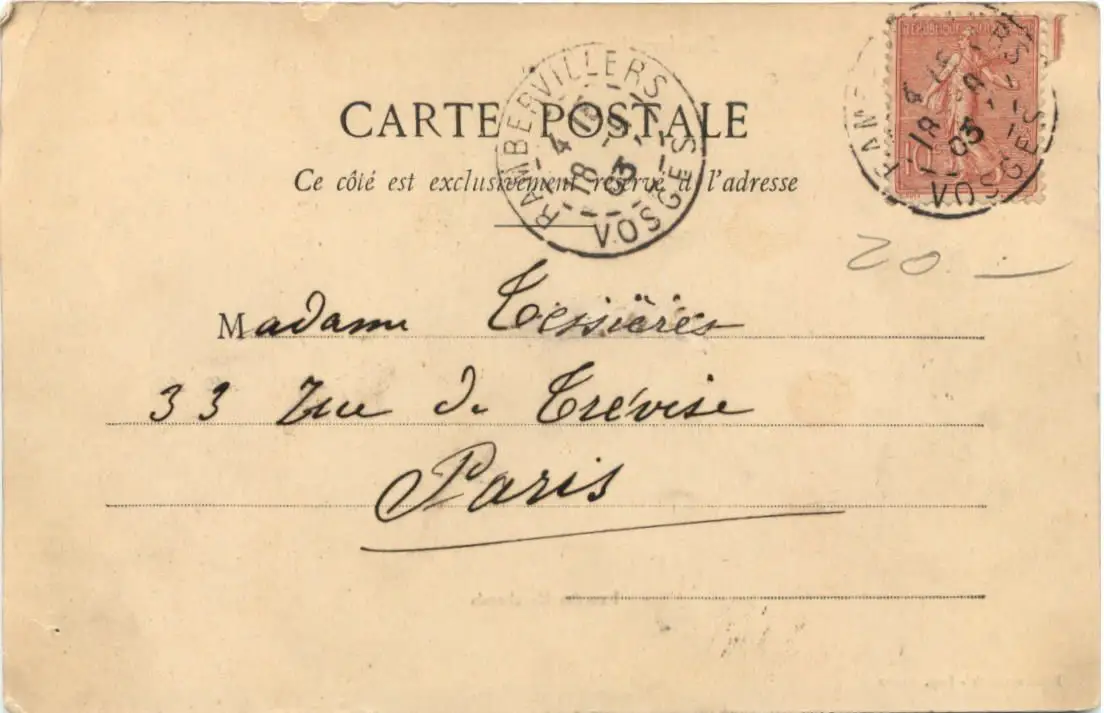 CARTE POSTALE
Ce côté est exclusivement réservé à l'adresse
RAMBERVILLERS
4 E
18 -9
03
VOSGES
RÉPUBLIQUE
10
RAMB RS
4 E
18 -9
03
VOSGES
20.—
Madame Tessières
33 Rue de Trévise
Paris